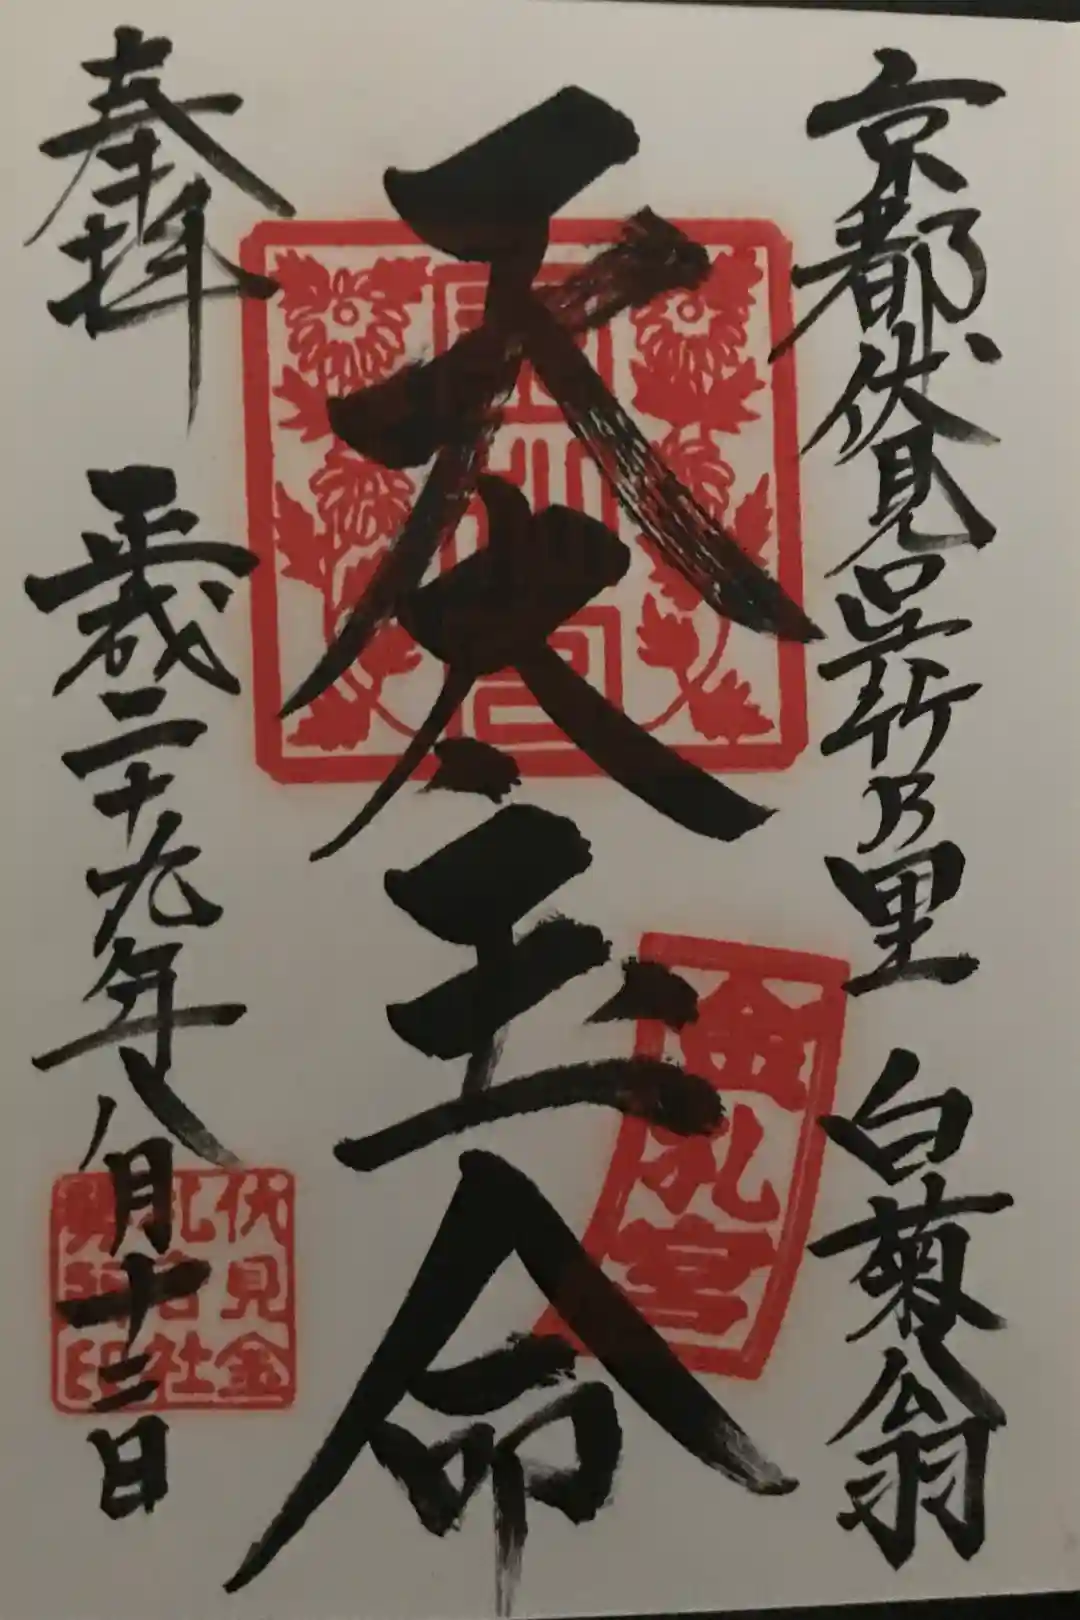 京都伏見呉竹乃里 白菊翁
天太玉命
奉拝 平成二十九年八月十二日
金札宮
伏見金
札宮社
印